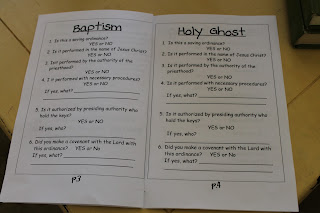 Baptism
1. Is this a saving ordinance?
YES or NO
2. Is it performed in the name of Jesus Christ?
YES or NO
3. Is it performed by the authority of the
priesthood?
YES or NO
4. Is it performed with necessary procedures?
YES or NO
If yes, what?
5. Is it authorized by presiding authority who
hold the keys?
YES or NO
If yes, who?
6. Did you make a covenant with the Lord with
this ordinance? YES or No
If yes, what?
p.3
Holy Ghost
1. Is this a saving ordinance?
YES or NO
2. Is it performed in the name of Jesus Christ?
YES or NO
3. Is it performed by the authority of the
priesthood?
YES or NO
4. Is it performed with necessary procedures?
YES or NO
If yes, what?
5. Is it authorized by presiding authority who
hold the keys?
YES or NO
If yes, who?
6. Did you make a covenant with the Lord with
this ordinance? YES or No
If yes, what?
p.4